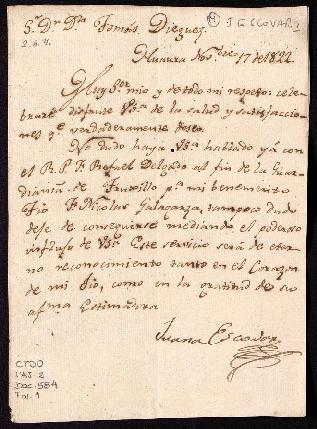 Sr. Dr. Dn. Tomás Dieguez
J. ESCOVAR
2.6.4.
Huaura Nov.bre 17 de 1822
Muy Sor. mio y de todo mi respeto: cele-
braré disfrute Vsa. de la salud y satisfaccio-
nes qe. verdaderamente deseo.
No dudo haya Vsa. hablado yá con
el R. P. Fr. Rafael Delgado al fin de la Guar-
diania de Truxillo pa. mi benemerito
Tio Fr. Nicolas tampoco dudo
dexe de conseguirse mediando el poderoso
influxo de Vsa. Este servicio será de eter-
no reconocimiento tanto en el Corazon
de mi tio, como en la gratitud de su
afma. Estimadora
Juana Escobar
CTDO
CAJ. 2
DOC. 584
Fol. 1